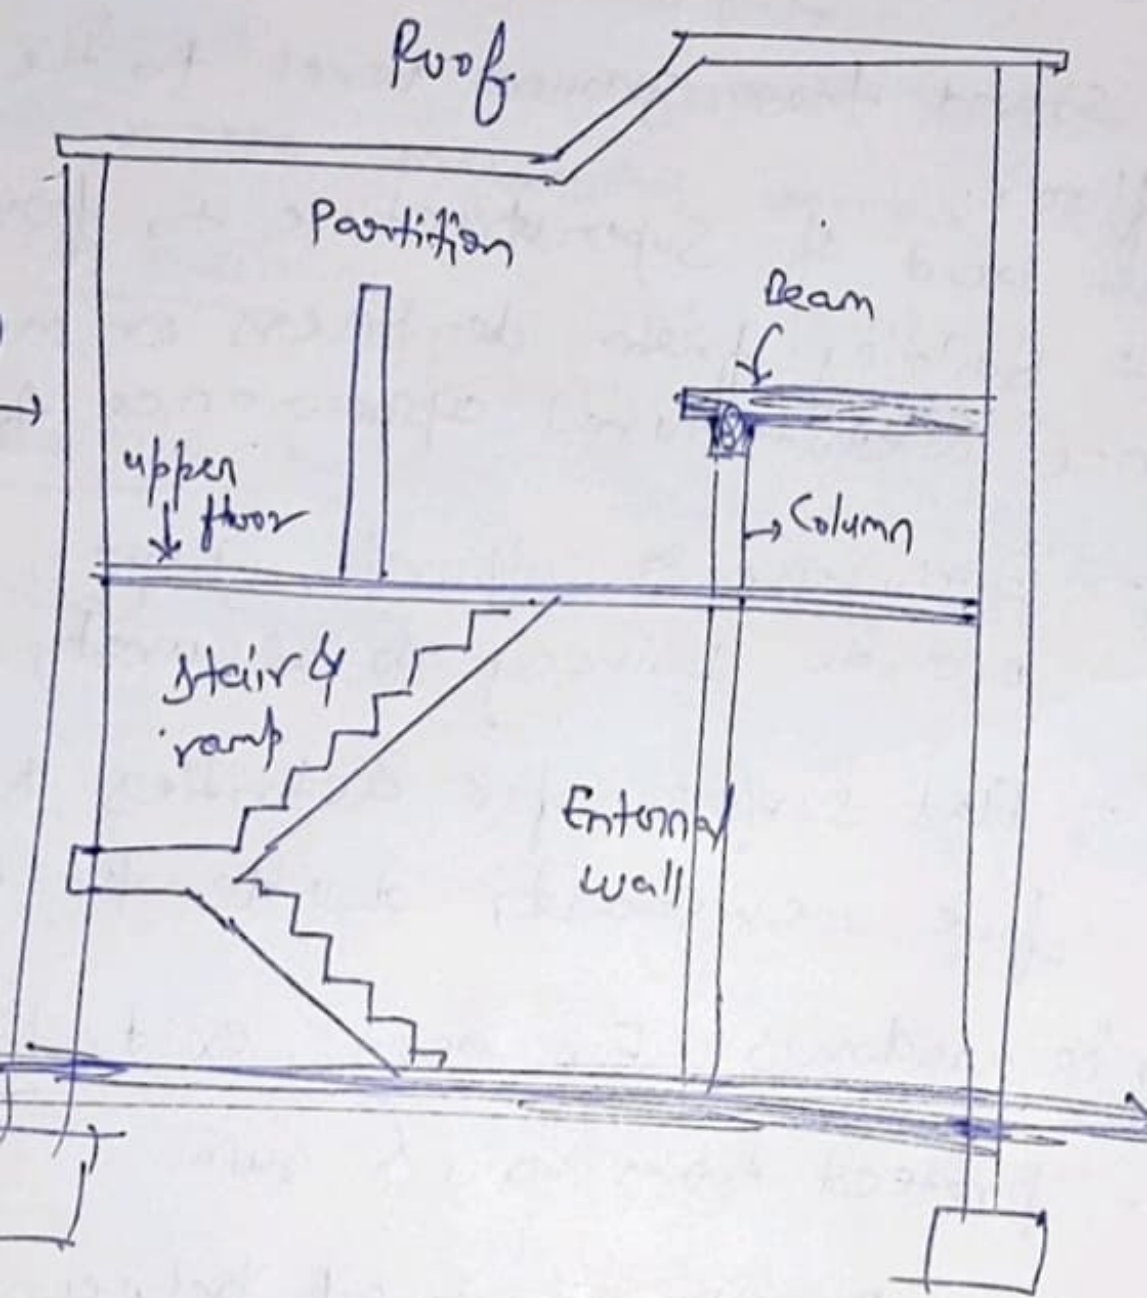 Roof
Partition
Beam
upper
floor
Column
Stair &
ramp
External
wall